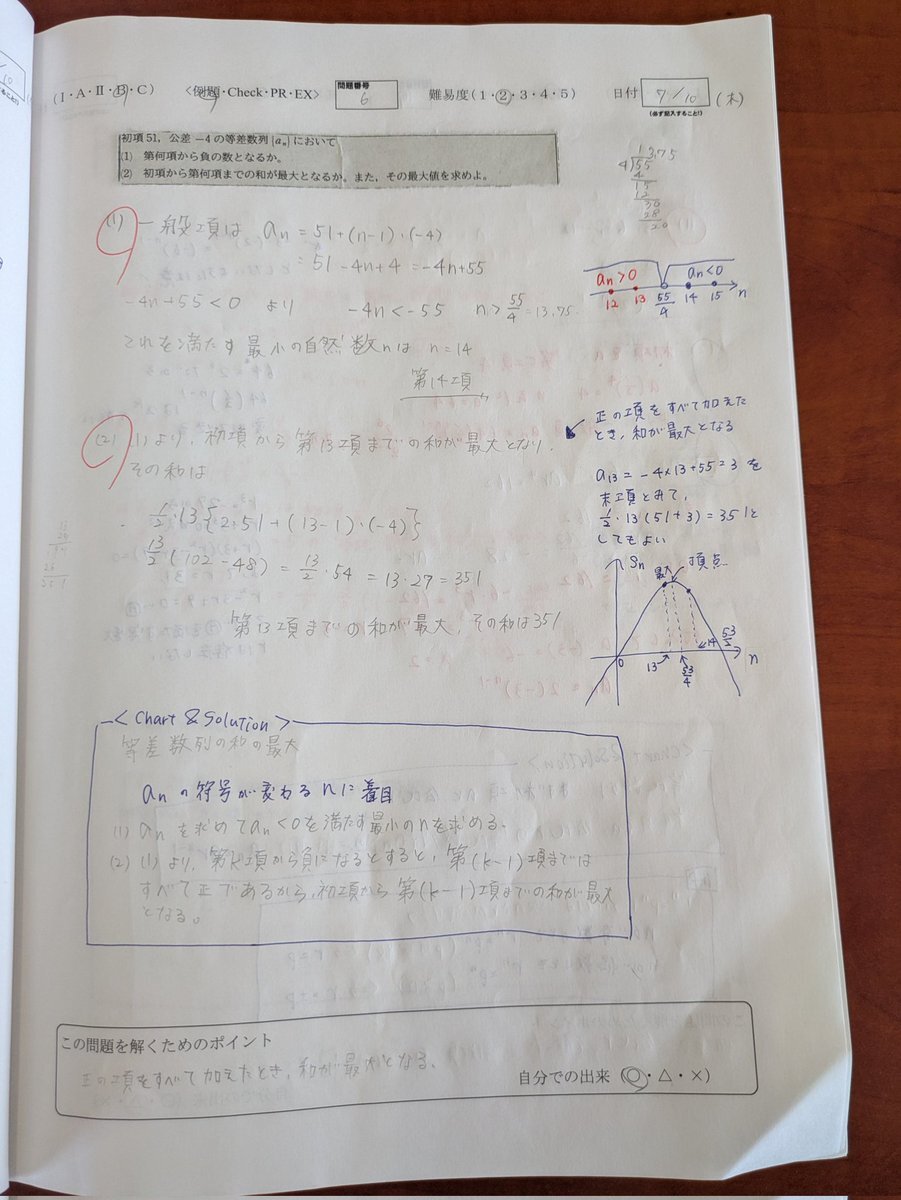 (I・A・II・B・C) <例題・Check・PR・EX> 問題番号 6 難易度(1・2・3・4・5) 日付 7/10 (木)
(必ず記入すること!)
初項51,公差−4の等差数列{aₙ}において
(1) 第何項から負の数となるか。
(2) 初項から第何項までの和が最大となるか。また,その最大値を求めよ。
13.75
4)55
4
15
12
30
28
20
(1) 一般項は aₙ = 51+(n-1)・(-4)
= 51 -4n+4 = -4n+55
-4n+55<0 より -4n<-55 n>55/4=13.75
これを満たす最小の自然数nは n=14
第14項
aₙ>0 aₙ<0
12 13 55/4 14 15 n
(2) (1)より,初項から第13項までの和が最大となり,
その和は
1/2・13{2・51+(13-1)・(-4)}
13/2(102-48) = 13/2・54 = 13・27 = 351
第13項までの和が最大,その和は351
正の項をすべて加えた
とき,和が最大となる
a₁₃=-4×13+55=3を
末項とみて,
1/2・13(51+3)=351と
してもよい
Sₙ 最大 頂点
0 13 53/4 14 53/2 n
<Chart & Solution>
等差数列の和の最大
aₙの符号が変わるnに着目
(1) aₙを求めてaₙ<0を満たす最小のnを求める。
(2) (1)より,第k項から負になるとすると,第(k-1)項までは
すべて正であるから,初項から第(k-1)項までの和が最大
となる。
この問題を解くためのポイント
正の項をすべて加えたとき,和が最大となる。
自分での出来(○・△・×)